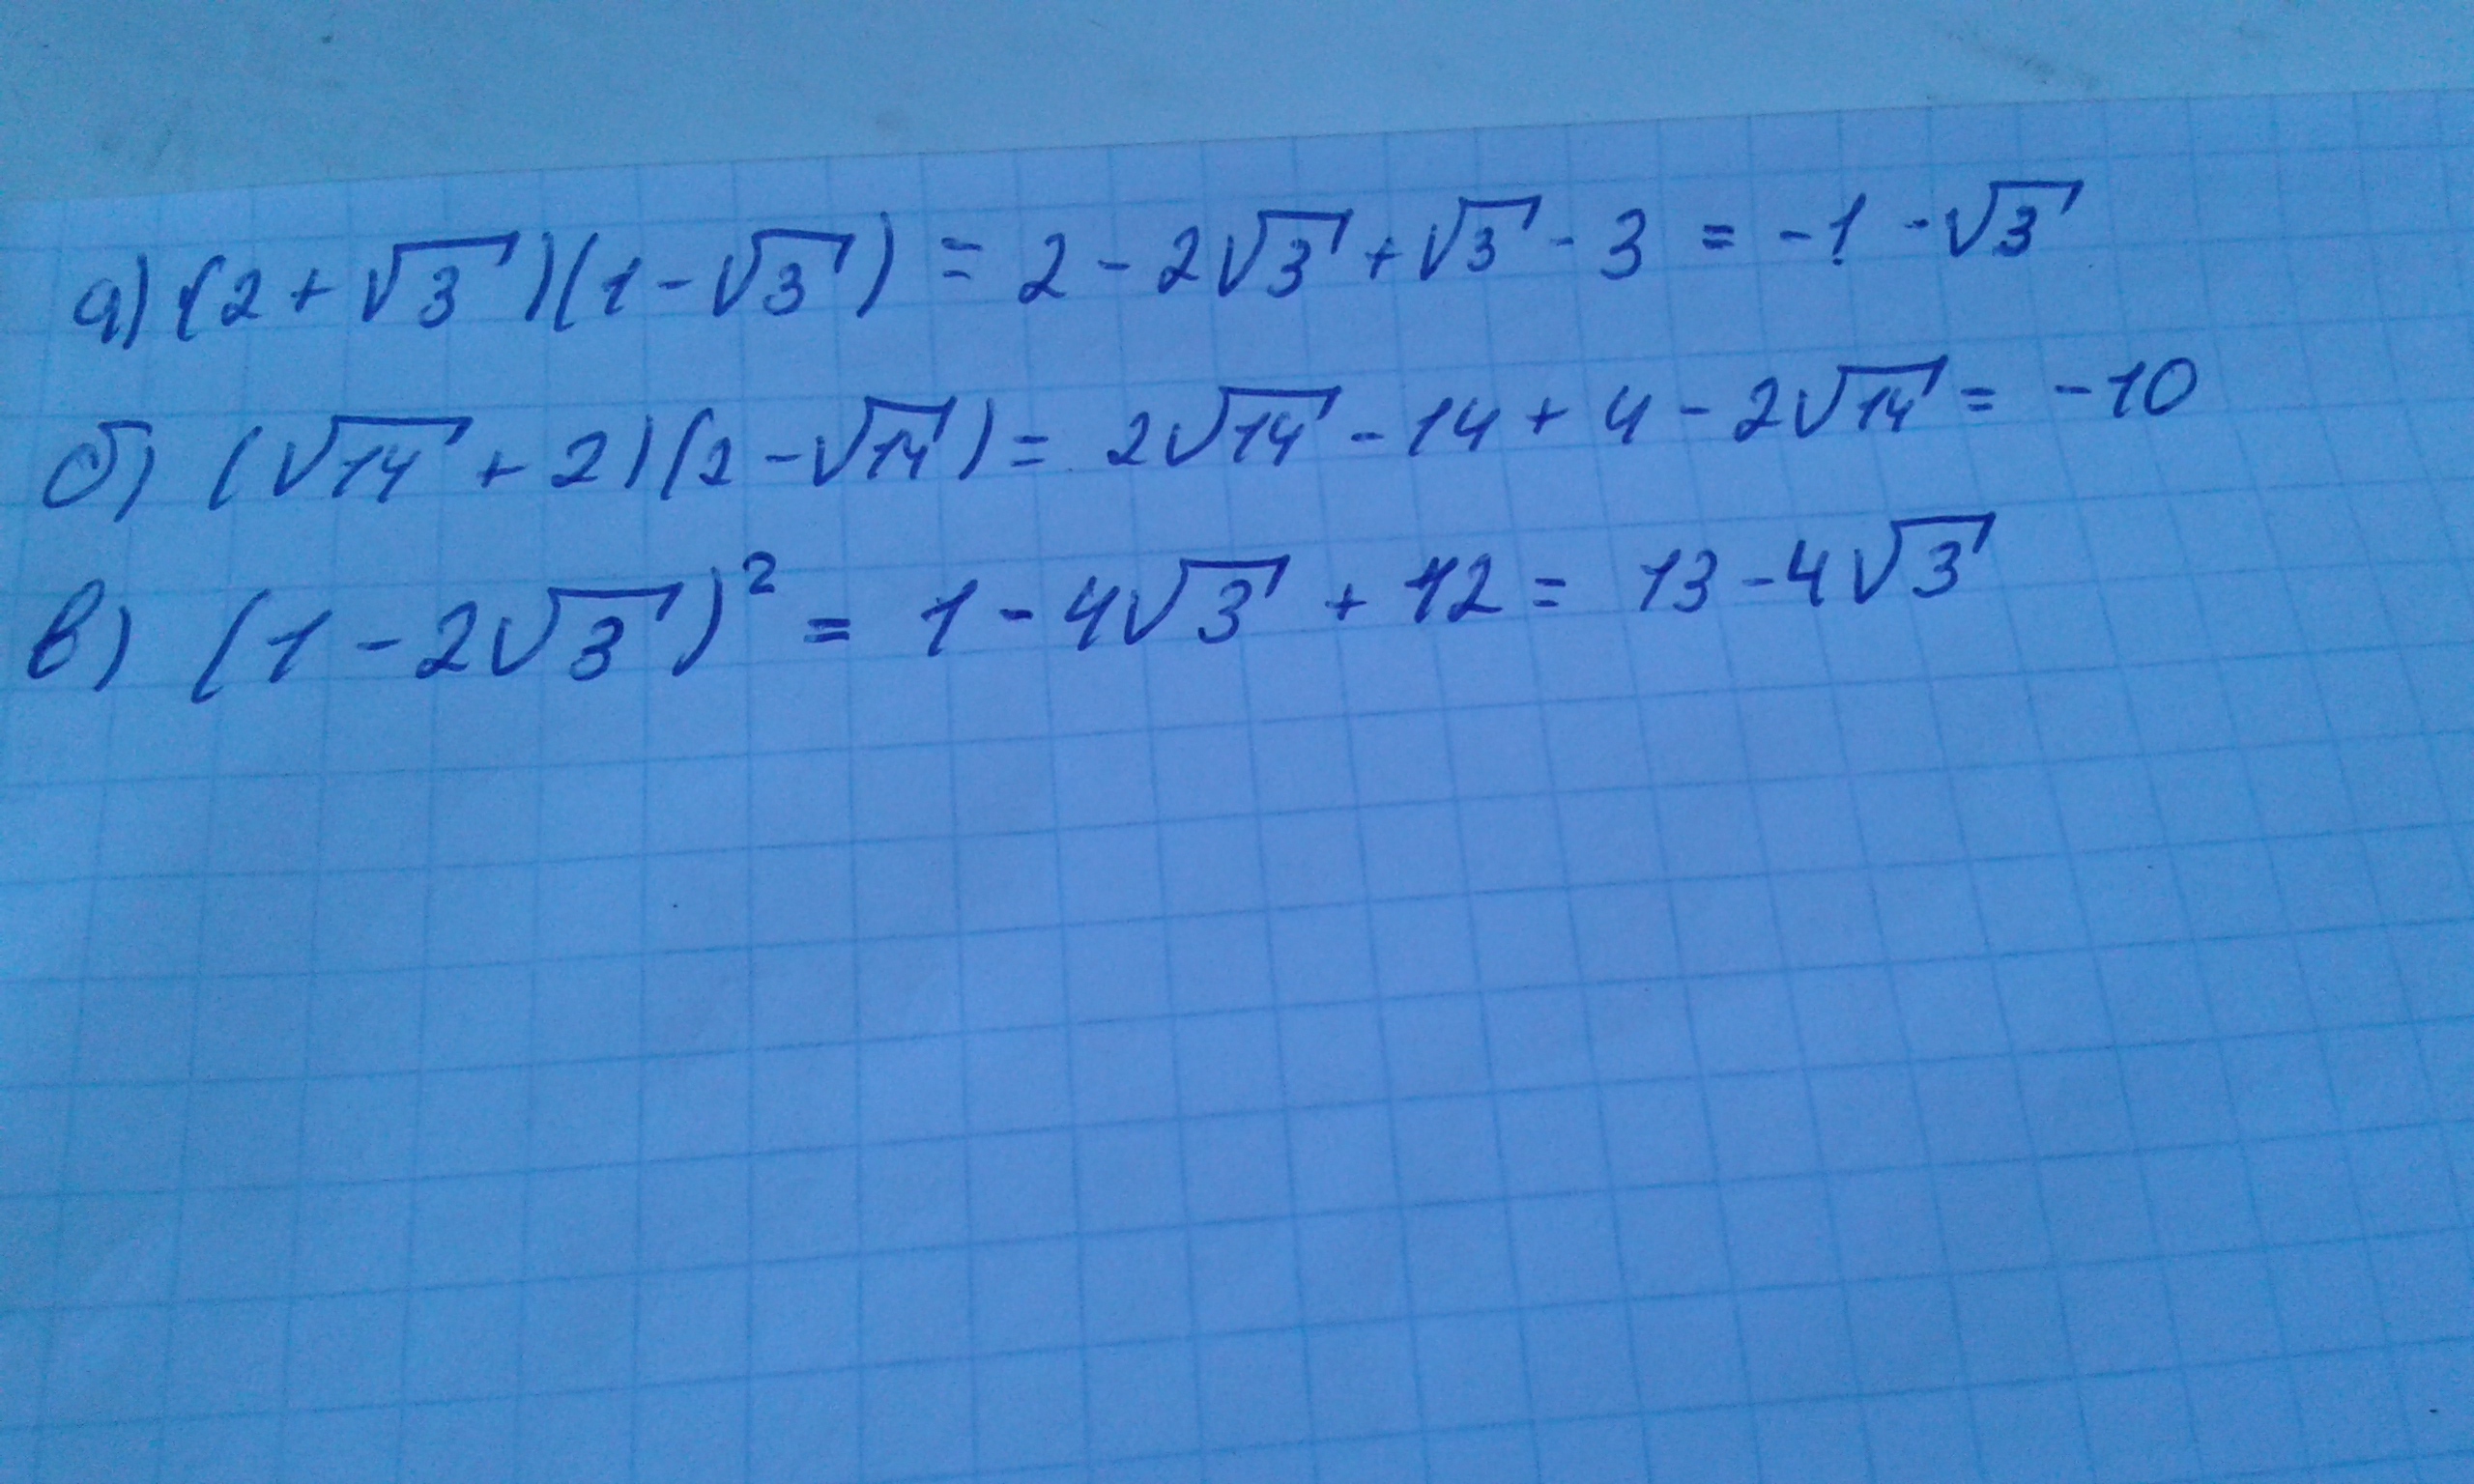 а) (2+√3)(1-√3) = 2 - 2√3 + √3 - 3 = -1 - √3
б) (√14 + 2)(2-√14) = 2√14 - 14 + 4 - 2√14 = -10
в) (1 - 2√3)² = 1 - 4√3 + 12 = 13 - 4√3